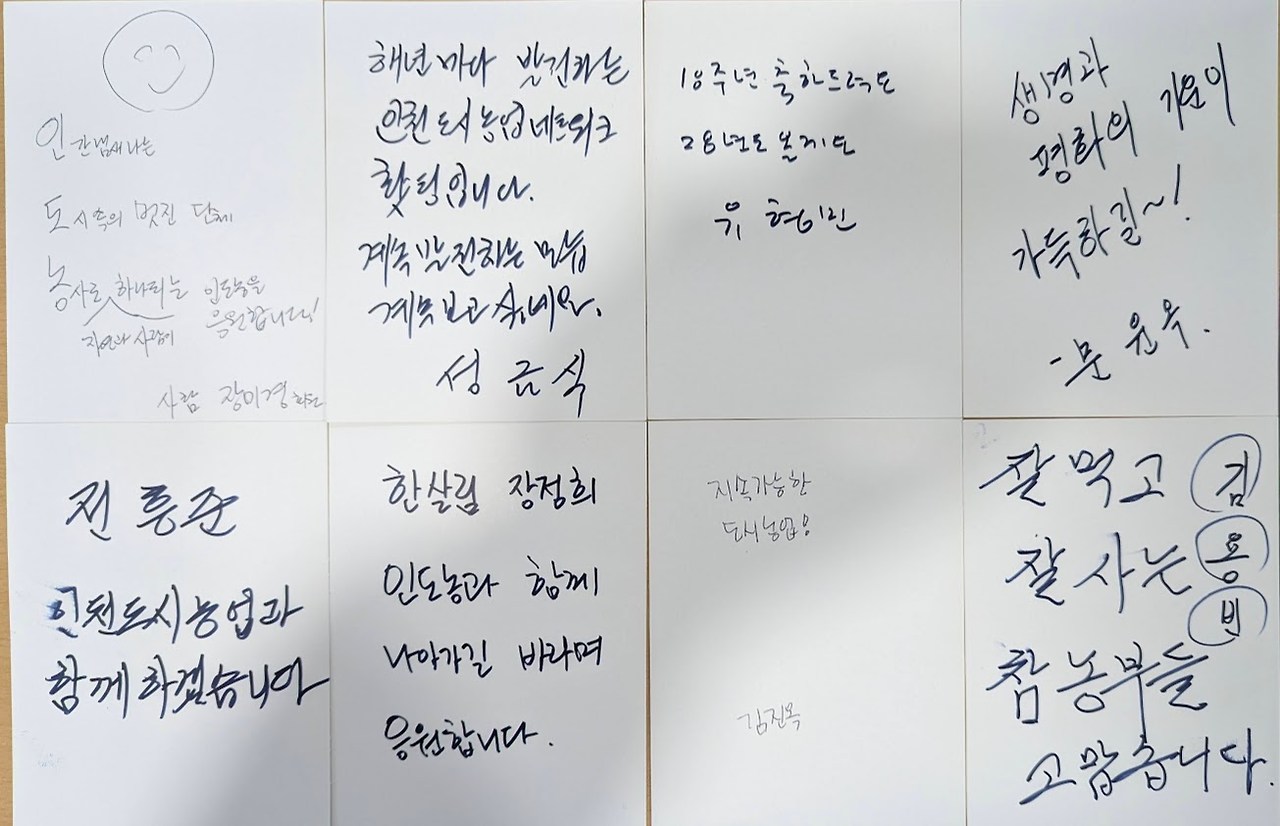 인간냄새나는
도시속의 멋진 단체
농사로 하나되는 인도농을
자연과 사람이 응원합니다!
사람 장미경
해년마다 발전하는
인천도시농업네트워크
홧팅입니다.
계속 발전하는 모습
계속 보고 싶네요.
성금식
18주년 축하드려요
28년도 볼께요
유형민
생명과
평화의 기운이
가득하길~!
-문윤옥.
전흥준
인천도시농업과
함께 하겠습니다
한살림 장정희
인도농과 함께
나아가길 바라며
응원합니다.
지속가능한
도시농업
김진옥
잘 먹고 김
잘 사는 용
빈
참 농부들
고맙습니다.